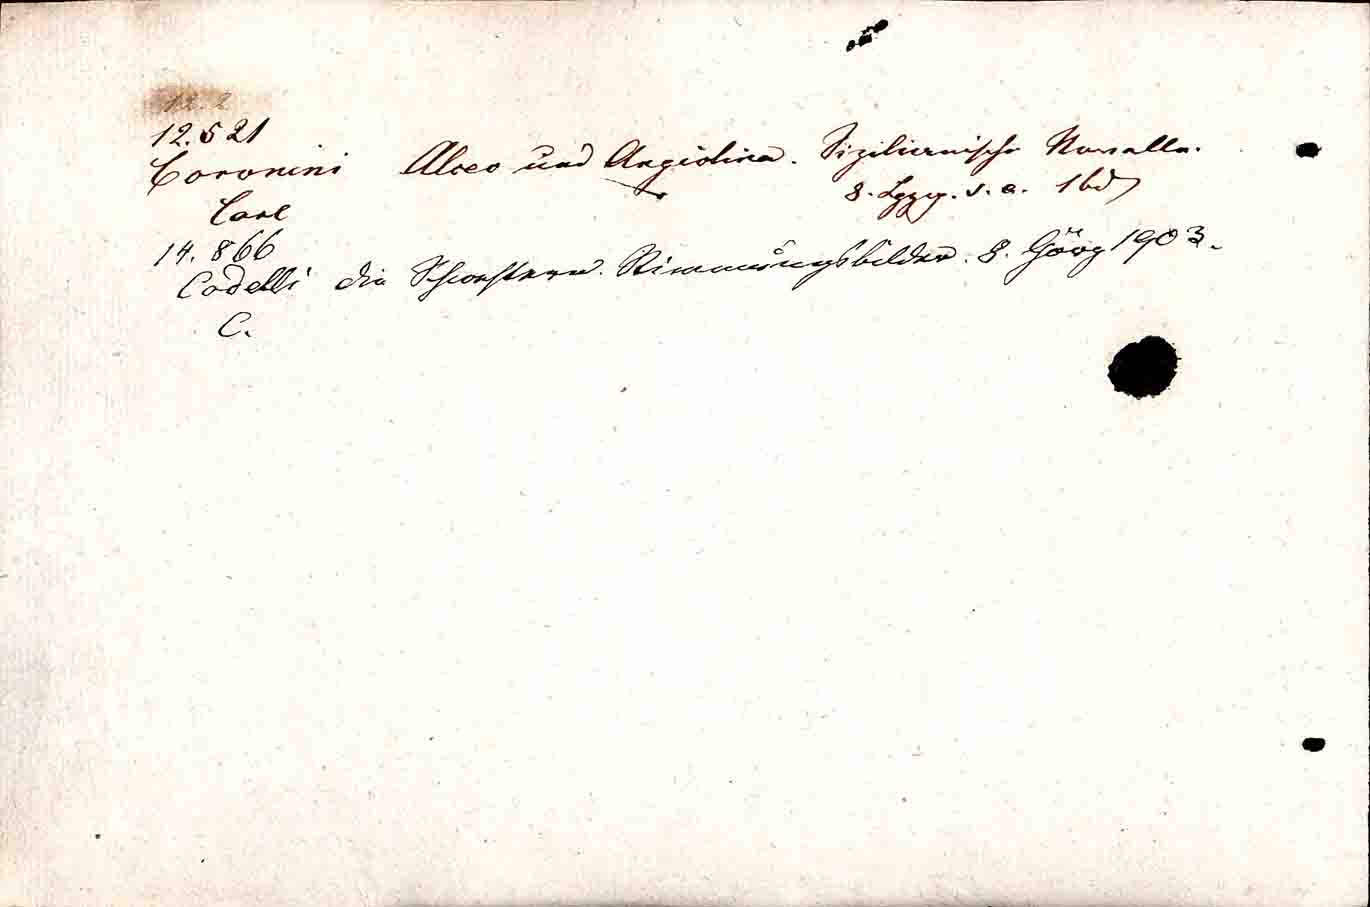 12.2
12.521
Coronini Alceo und Angiolina. Sizilianische Novelle.
8. Lpzg. s. a. 1 bd
Carl
14.866
Codelli Die Schwestern. Stimmungsbilder. 8. Görz 1903.
C.